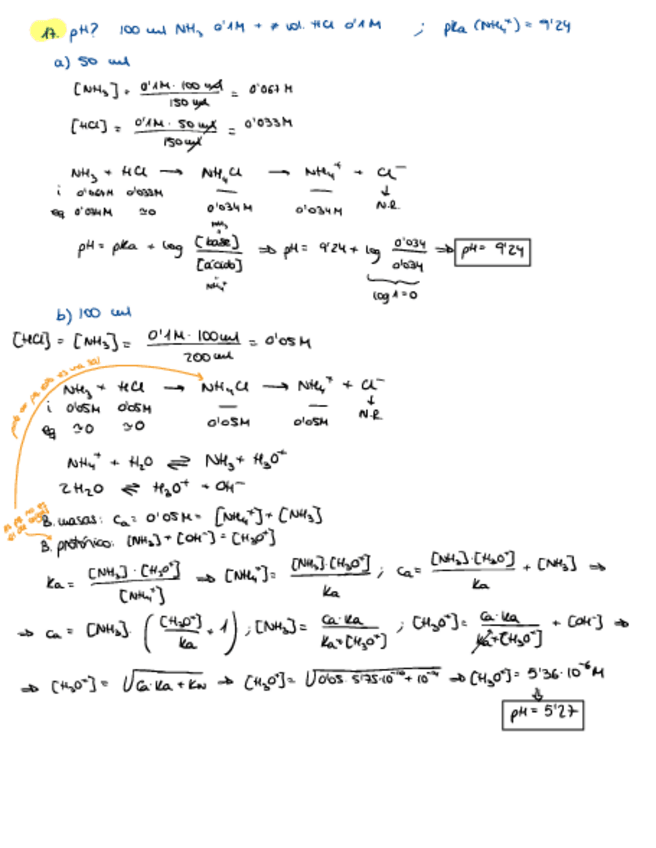 17. pH? 100 ml NH₃ 0'1M + ≠ vol. HCl 0'1M ; pKa (NH₄⁺) = 9'24
a) 50 ml
[NH₃] = 0'1M · 100 ml / 150 ml = 0'067 M
[HCl] = 0'1M · 50 ml / 150 ml = 0'033M
NH₃ + HCl → NH₄Cl → NH₄⁺ + Cl⁻
i 0'067M 0'033M — — ↓ N.R.
eq 0'034M ≃0 0'034M 0'034M
pH = pKa + log [base] / [ácido] ⇒ pH = 9'24 + log 0'034 / 0'034 ⇒ pH = 9'24
NH₃
NH₄⁺
log 1 = 0
b) 100 ml
[HCl] = [NH₃] = 0'1M · 100 ml / 200 ml = 0'05M
NH₃ + HCl → NH₄Cl → NH₄⁺ + Cl⁻
i 0'05M 0'05M — — ↓ N.R.
eq ≃0 ≃0 0'05M 0'05M
NH₄⁺ + H₂O ⇌ NH₃ + H₃O⁺
2H₂O ⇌ H₃O⁺ + OH⁻
B. masas: Ca = 0'05M = [NH₄⁺] + [NH₃]
B. protónico: [NH₃] + [OH⁻] = [H₃O⁺]
Ka = [NH₃] · [H₃O⁺] / [NH₄⁺] ⇒ [NH₄⁺] = [NH₃] · [H₃O⁺] / Ka ; Ca = [NH₃] · [H₃O⁺] / Ka + [NH₃] ⇒
⇒ Ca = [NH₃] · ([H₃O⁺] / Ka + 1) ; [NH₃] = Ca · Ka / Ka + [H₃O⁺] ; [H₃O⁺] = Ca · Ka / Ka + [H₃O⁺] + [OH⁻] ⇒
⇒ [H₃O⁺] = √Ca · Ka + Kw ⇒ [H₃O⁺] = √0'05 · 5'75·10⁻¹⁰ + 10⁻¹⁴ ⇒ [H₃O⁺] = 5'36·10⁻⁶ M
⇓
pH = 5'27